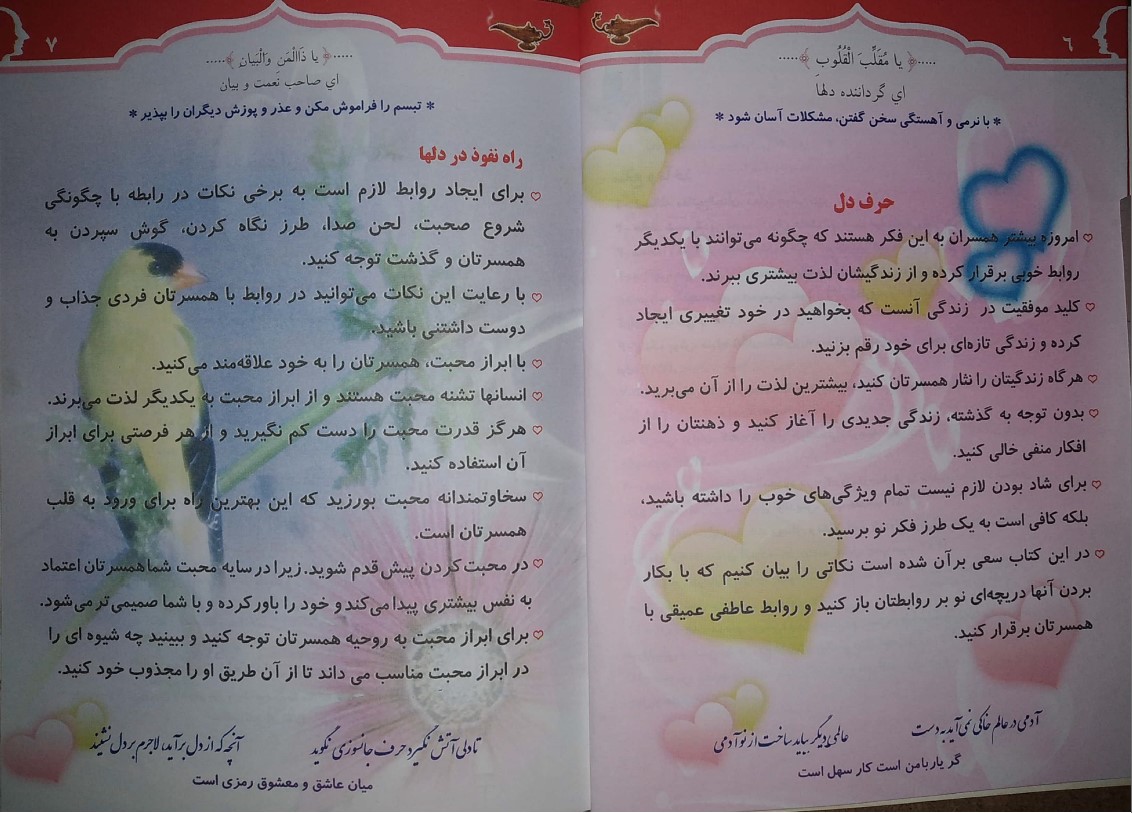 ٦
﴿ یا مُقَلِّبَ الْقُلُوبِ ﴾
اي گرداننده دلها
* با نرمی و آهستگی سخن گفتن، مشکلات آسان شود *
حرف دل
امروزه بیشتر همسران به این فکر هستند که چگونه می‌توانند با یکدیگر
روابط خوبی برقرار کرده و از زندگیشان لذت بیشتری ببرند.
کلید موفقیت در زندگی آنست که بخواهید در خود تغییری ایجاد
کرده و زندگی تازه‌ای برای خود رقم بزنید.
هرگاه زندگیتان را نثار همسرتان کنید، بیشترین لذت را از آن می‌برید.
بدون توجه به گذشته، زندگی جدیدی را آغاز کنید و ذهنتان را از
افکار منفی خالی کنید.
برای شاد بودن لازم نیست تمام ویژگی‌های خوب را داشته باشید،
بلکه کافی است به یک طرز فکر نو برسید.
در این کتاب سعی برآن شده است نکاتی را بیان کنیم که با بکار
بردن آنها دریچه‌ای نو بر روابطتان باز کنید و روابط عاطفی عمیقی با
همسرتان برقرار کنید.
آدمی در عالم خاکی نمی‌آید به دست عالمی دیگر بباید ساخت از نو آدمی
گر یار بامن است کار سهل است
٧
﴿ یا ذَاالْمَنِ وَالْبَیانِ ﴾
اي صاحب نعمت و بیان
* تبسم را فراموش مکن و عذر و پوزش دیگران را بپذیر *
راه نفوذ در دلها
برای ایجاد روابط لازم است به برخی نکات در رابطه با چگونگی
شروع صحبت، لحن صدا، طرز نگاه کردن، گوش سپردن به
همسرتان و گذشت توجه کنید.
با رعایت این نکات می‌توانید در روابط با همسرتان فردی جذاب و
دوست داشتنی باشید.
با ابراز محبت، همسرتان را به خود علاقه‌مند می‌کنید.
انسانها تشنه محبت هستند و از ابراز محبت به یکدیگر لذت می‌برند.
هرگز قدرت محبت را دست کم نگیرید و از هر فرصتی برای ابراز
آن استفاده کنید.
سخاوتمندانه محبت بورزید که این بهترین راه برای ورود به قلب
همسرتان است.
در محبت کردن پیش قدم شوید. زیرا در سایه محبت شما همسرتان اعتماد
به نفس بیشتری پیدا می‌کند و خود را باور کرده و با شما صمیمی‌تر می‌شود.
برای ابراز محبت به روحیه همسرتان توجه کنید و ببینید چه شیوه ای را
در ابراز محبت مناسب می داند تا از آن طریق او را مجذوب خود کنید.
تا دلی آتش نگیرد حرف جانسوزی نگوید آنچه که از دل برآید، لاجرم بر دل نشیند
میان عاشق و معشوق رمزی است